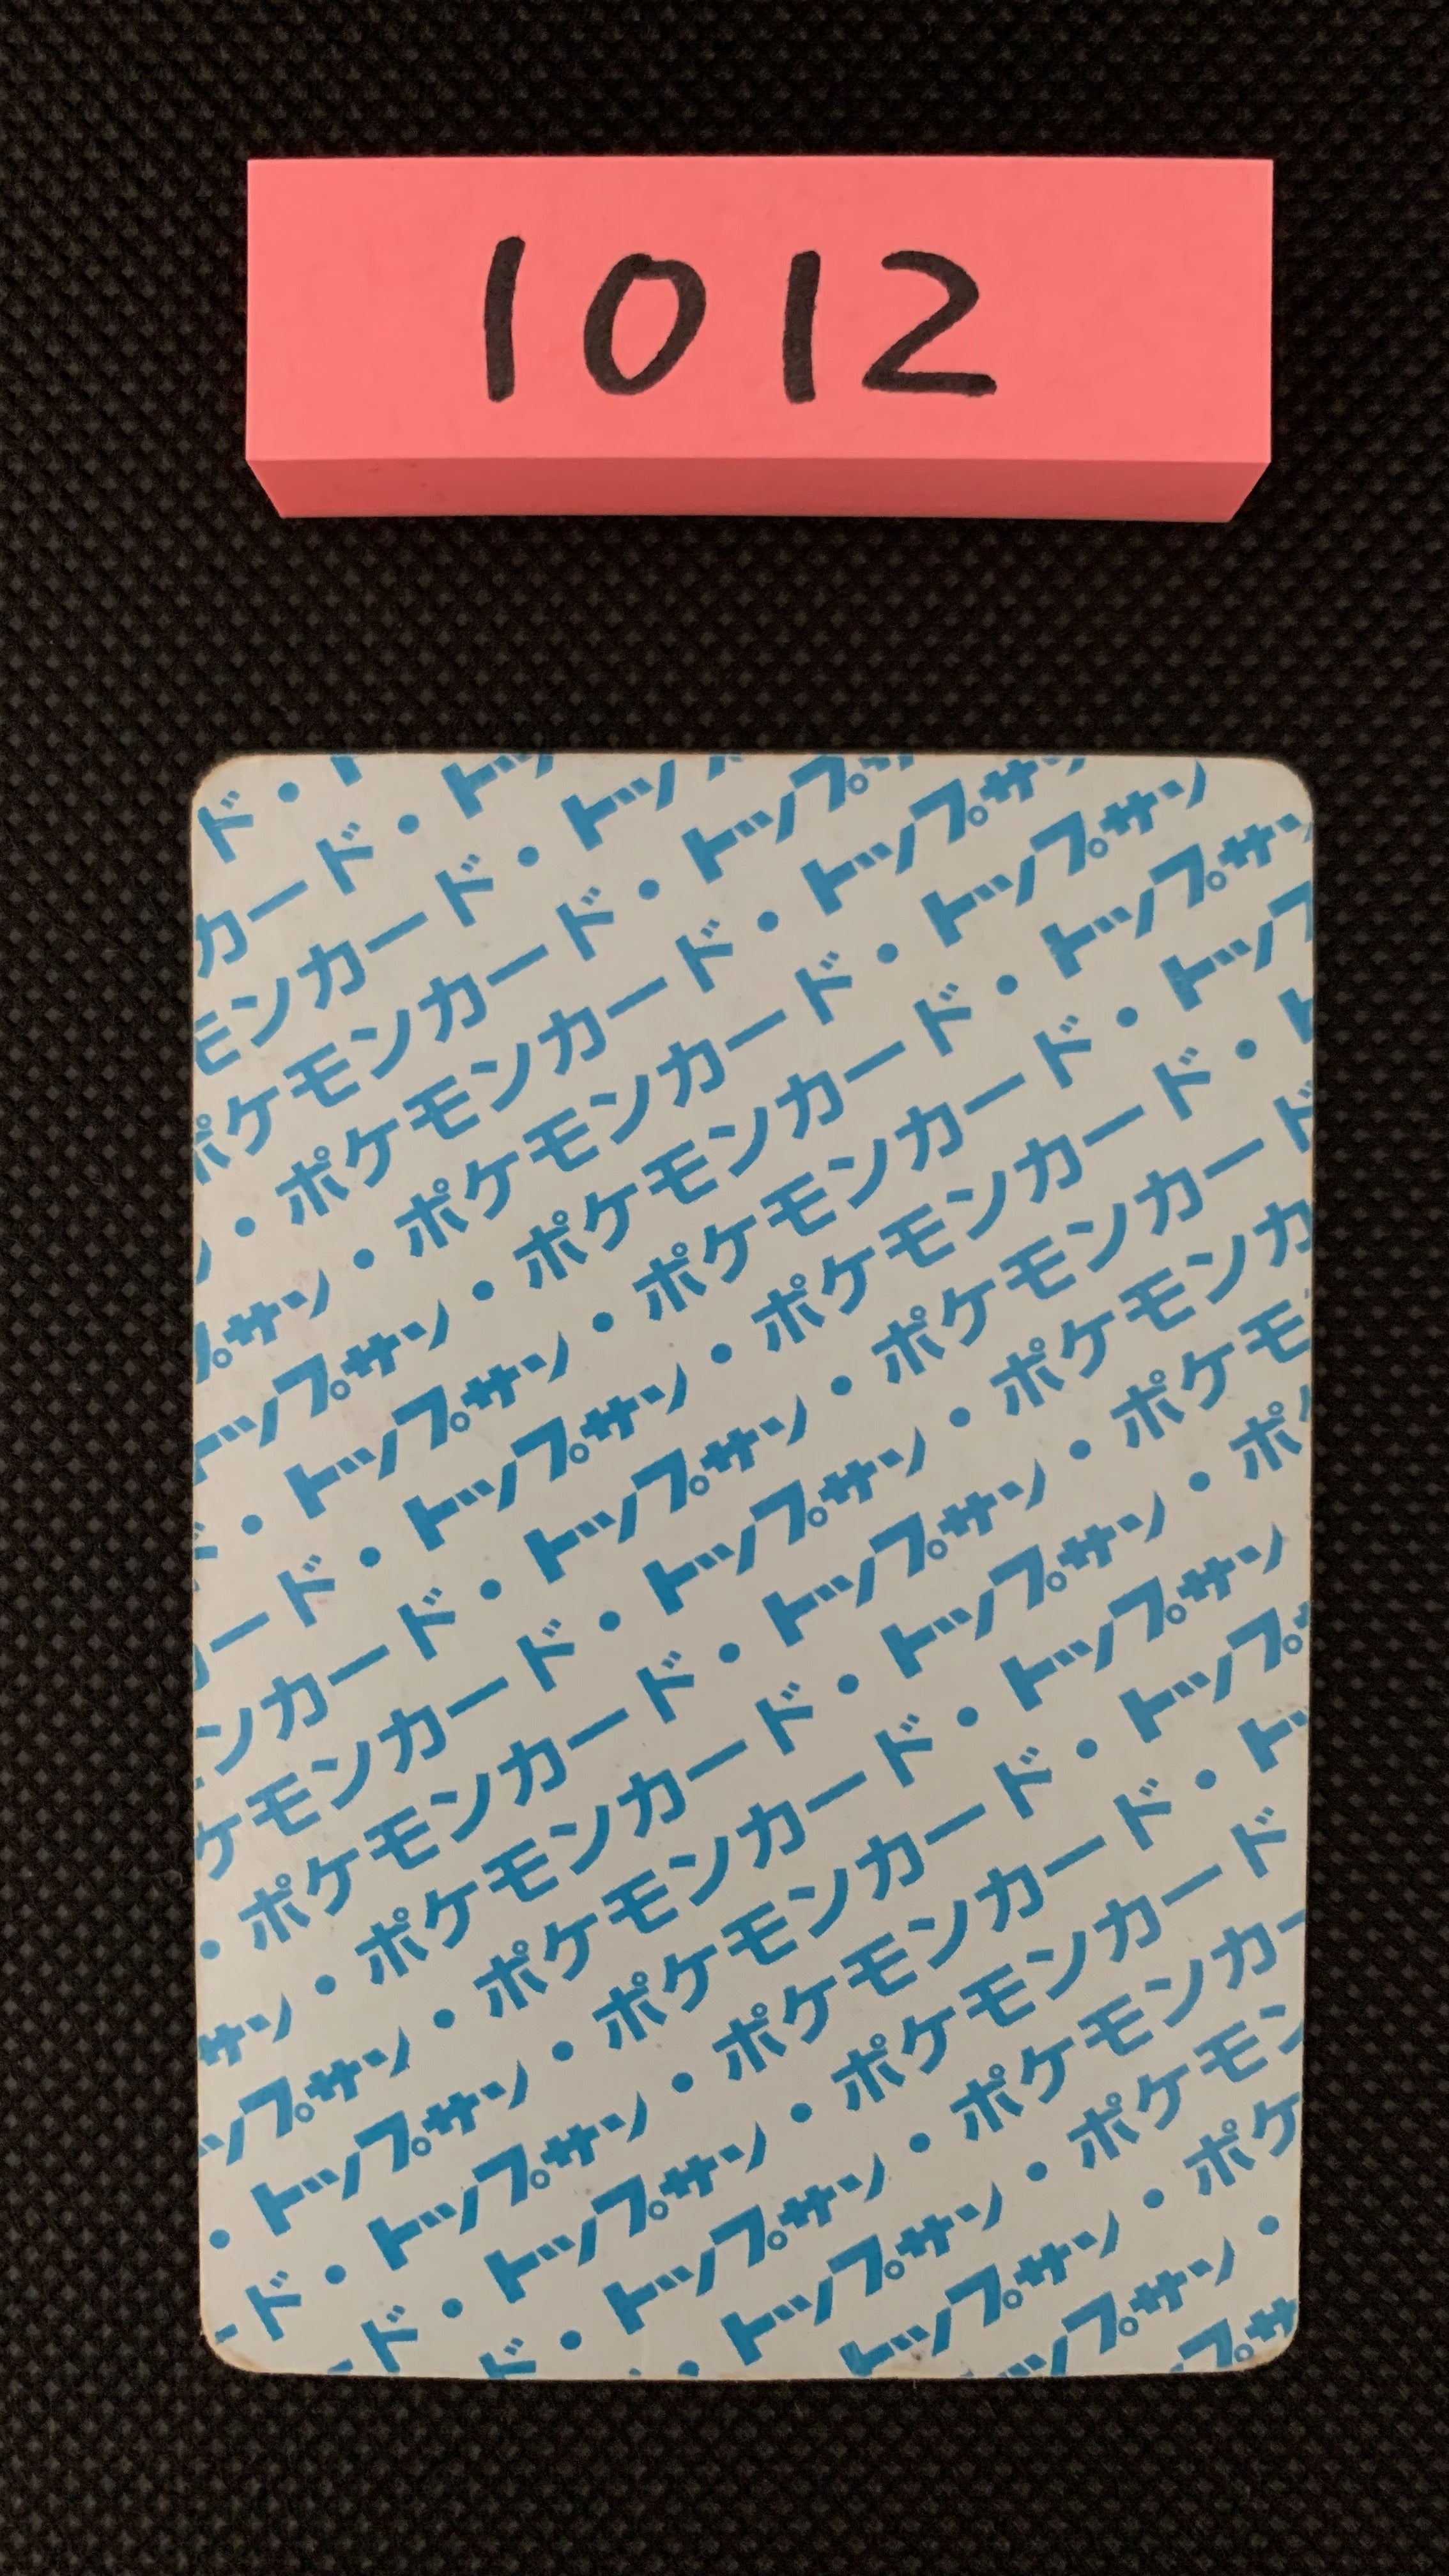 ド・ト
カード・トッ
モンカード・トッ
ポケモンカード・トップサ
・ポケモンカード・トップサ
プサン・ポケモンカード・トップサン
トップサン・ポケモンカード・トップサン
・トップサン・ポケモンカード・トップ
ード・トップサン・ポケモンカード・ト
ンカード・トップサン・ポケモンカード
ケモンカード・トップサン・ポケモンカ
・ポケモンカード・トップサン・ポケモ
サン・ポケモンカード・トップサン・ポ
ップサン・ポケモンカード・トップサン
・トップサン・ポケモンカード・トップ
ード・トップサン・ポケモンカード・トッ
ド・トップサン・ポケモンカード
ド・トップサン・ポケモンカー
・トップサン・ポケモン
トップサン・ポケ
ップサン・
プサ
1012